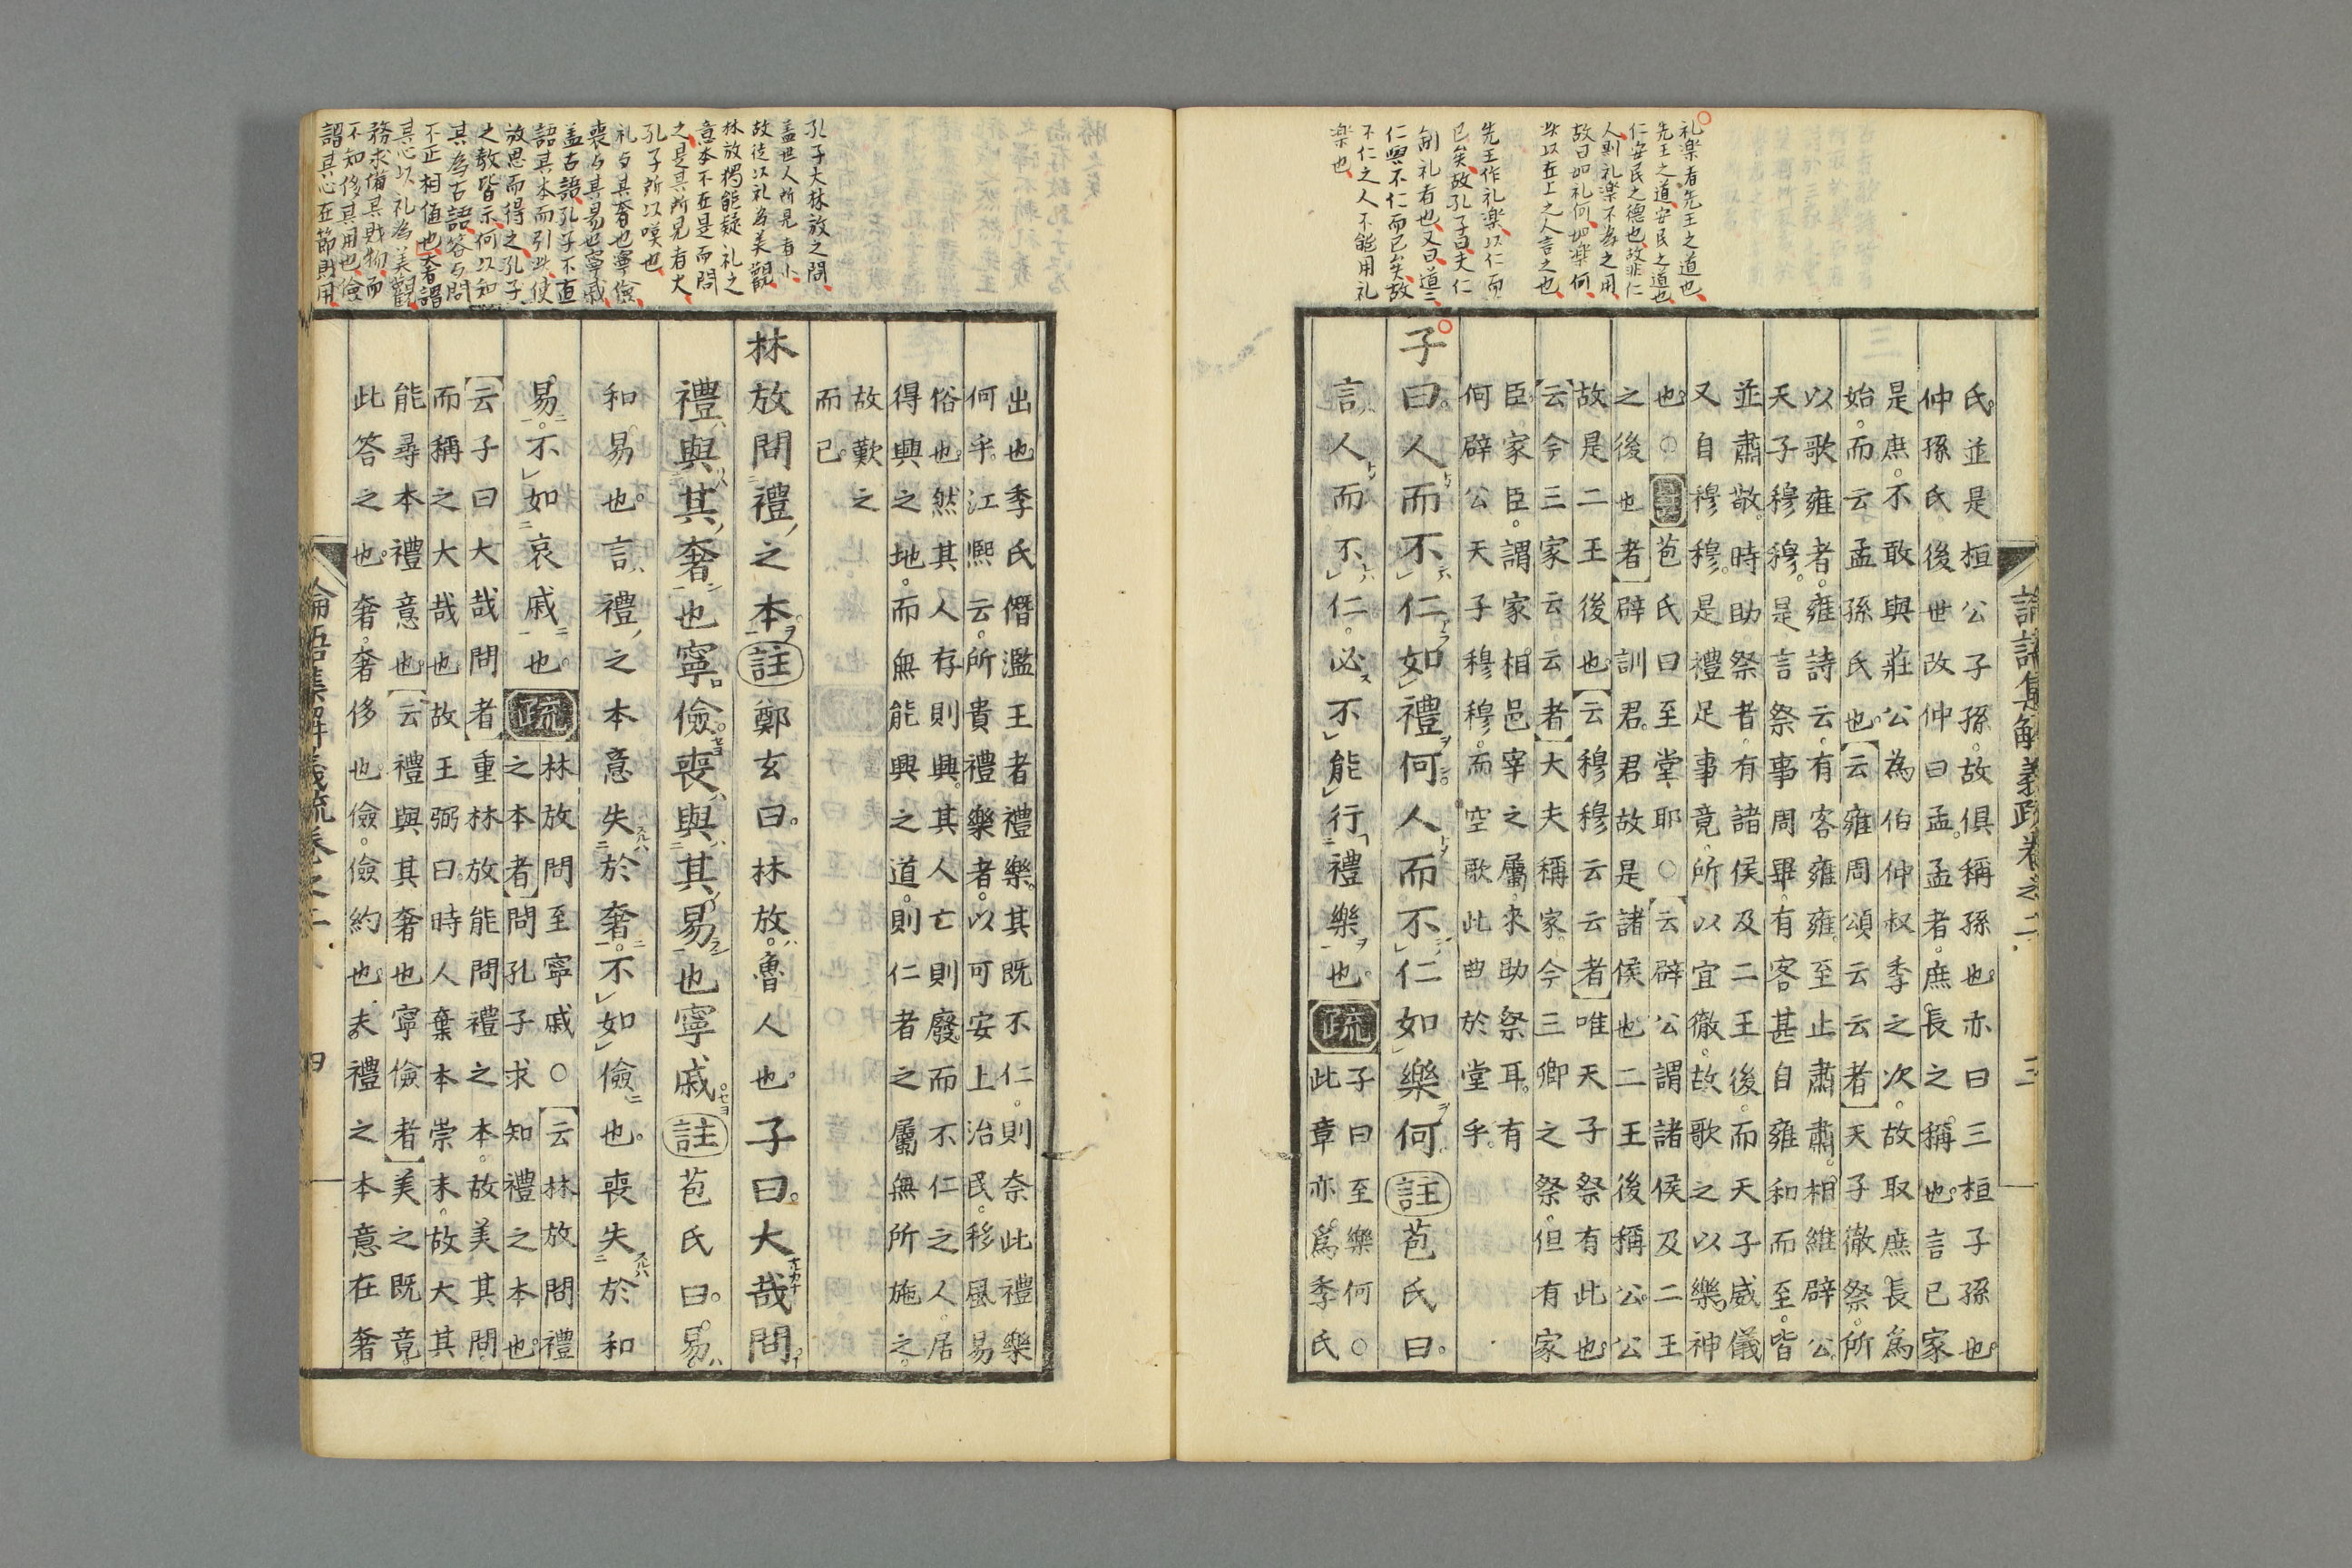 礼楽者先王之道也
先王之道安民之道也
仁安民之德也故非仁
人則礼楽不為之用
故曰如礼何如楽何
此以在上之人言之也
先王作礼楽以仁而
已矣故孔子曰夫仁
制礼者也又曰道二
仁與不仁而已矣故
不仁之人不能用礼
楽也
論語集解義疏卷之二 三
氏並是桓公子孫故俱稱孫也亦曰三桓子孫也
仲孫氏後世改仲曰孟孟者庶長之稱也言已家
是庶不敢與莊公為伯仲叔季之次故取庶長爲
始而云孟孫氏也【云雍周頌云云者】天子徹祭所
以歌雍者雍詩云有客雍雍至止肅肅相維辟公
天子穆穆是言祭事周畢有客甚自雍和而至皆
並肅敬時助祭者有諸侯及二王後而天子威儀
又自穆穆是禮足事竟所以宜徹故歌之以樂神
也○註苞氏曰至堂耶○【云辟公謂諸侯及二王
之後也者】辟訓君君故是諸侯也二王後稱公公
故是二王後也【云穆穆云云者】唯天子祭有此也
【云今三家云云者】大夫稱家今三卿之祭但有家
臣家臣謂家相邑宰之屬來助祭耳有
何辟公天子穆穆而空歌此曲於堂乎
子曰人而不仁如禮何人而不仁如樂何註苞氏曰
言人而不仁必不能行禮樂也疏
子曰至樂何○
此章亦爲季氏
孔子大林放之問
蓋世人所見者小
故徒以礼為美觀
林放獨能疑礼之
意本不在是而問
之是其所見者大
孔子所以嘆也
礼与其奢也寧儉
喪与其易也寧戚
蓋古語孔子不直
語其本而引此使
放思而得之孔子
之教皆示何以知
其為古語答与問
不正相値也奢者謂
其心以礼為美觀
務求備其財物而
不知侈其用也儉
謂其心在節財用
出也季氏僭濫王者禮樂其既不仁則奈此禮樂
何乎江熙云所貴禮樂者以可安上治民移風易
俗也然其人存則興其人亡則廢而不仁之人居
得興之地而無能興之道則仁者之屬無所施之
故歎之
而已
林放問禮之本註鄭玄曰林放魯人也子曰大哉問
禮與其奢也寧儉喪與其易也寧戚註苞氏曰易
和易也言禮之本意失於奢不如儉也喪失於和
易不如哀戚也疏
林放問至寧戚○【云林放問禮
之本者】問孔子求知禮之本也
【云子曰大哉問者】重林放能問禮之本故美其問
而稱之大哉也故王弼曰時人棄本崇末故大其
能尋本禮意也【云禮與其奢也寧儉者】美之既竟
此答之也奢奢侈也儉儉約也夫禮之本意在奢
論語集解義疏卷之二 四